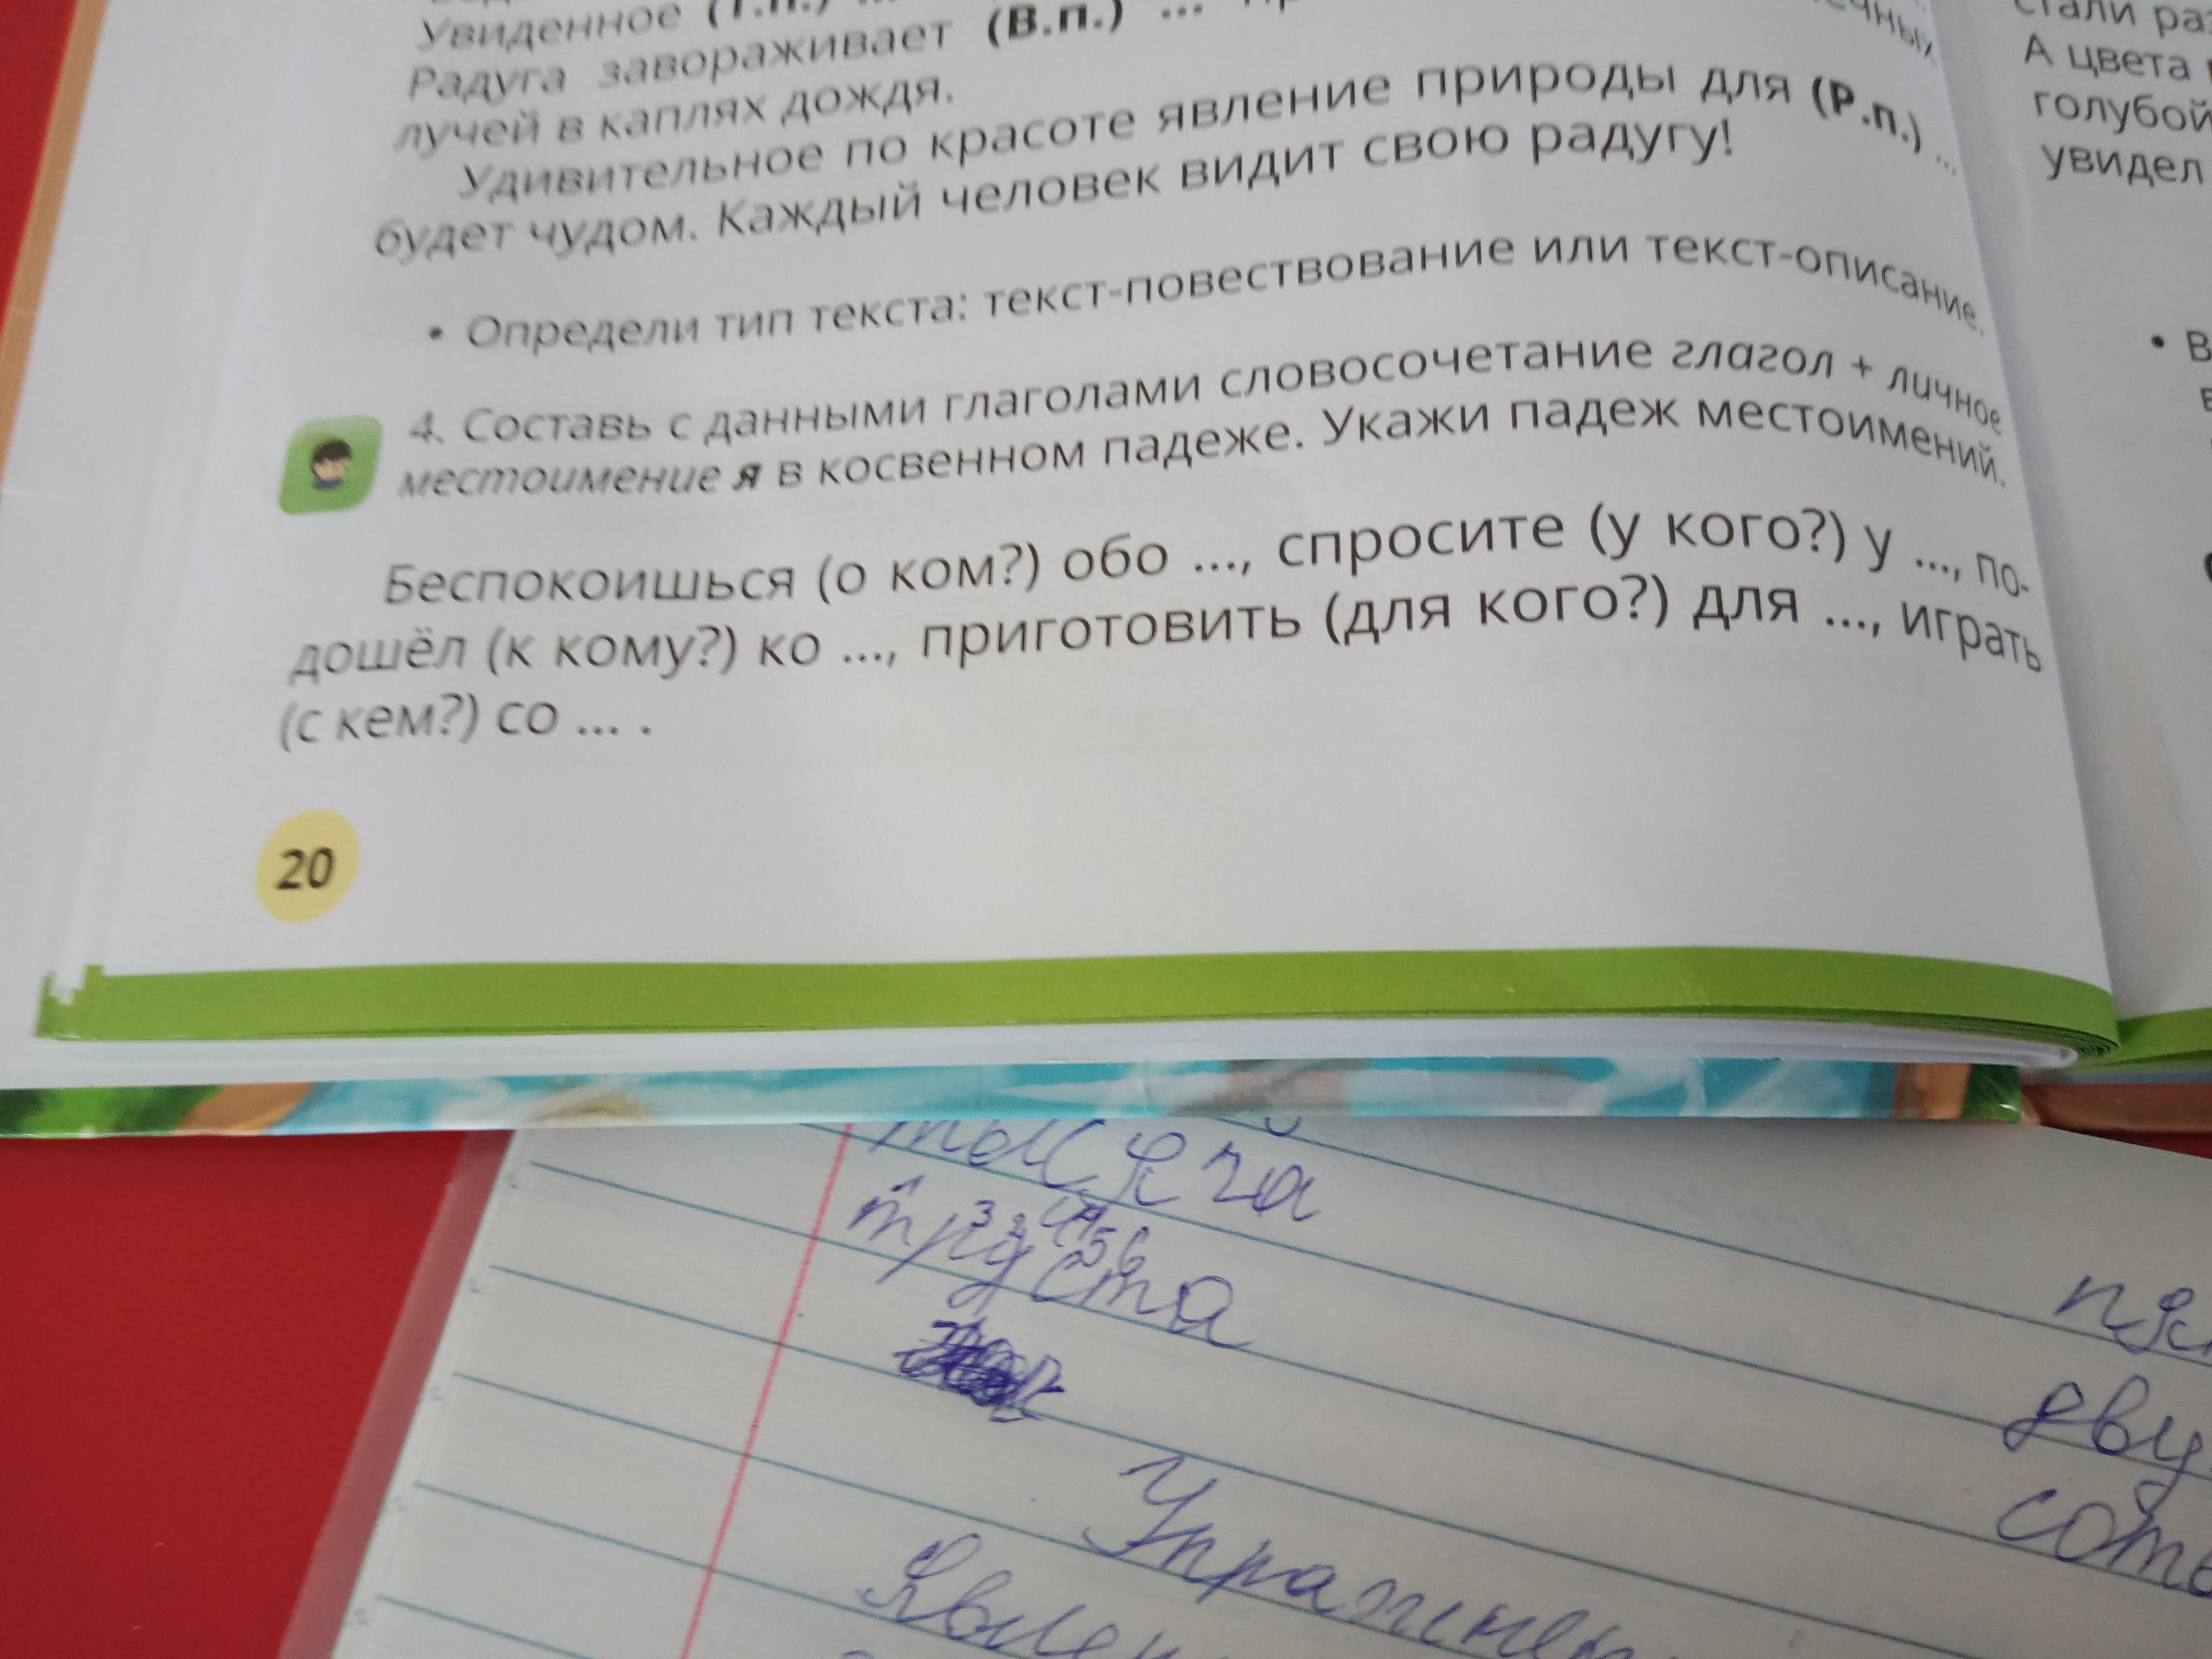 Увиденное (Т.п.) ...
Радуга завораживает (В.п.) ...
лучей в каплях дождя.
Удивительное по красоте явление природы для (Р.п.) ...
будет чудом. Каждый человек видит свою радугу!
• Определи тип текста: текст-повествование или текст-описание.
4. Составь с данными глаголами словосочетание глагол + личное
местоимение я в косвенном падеже. Укажи падеж местоимений.
Беспокоишься (о ком?) обо ..., спросите (у кого?) у ..., по-
дошёл (к кому?) ко ..., приготовить (для кого?) для ..., играть
(с кем?) со ... .
20
стали
А цвета
голубой
увидел
• В
тысяча
триста
сот